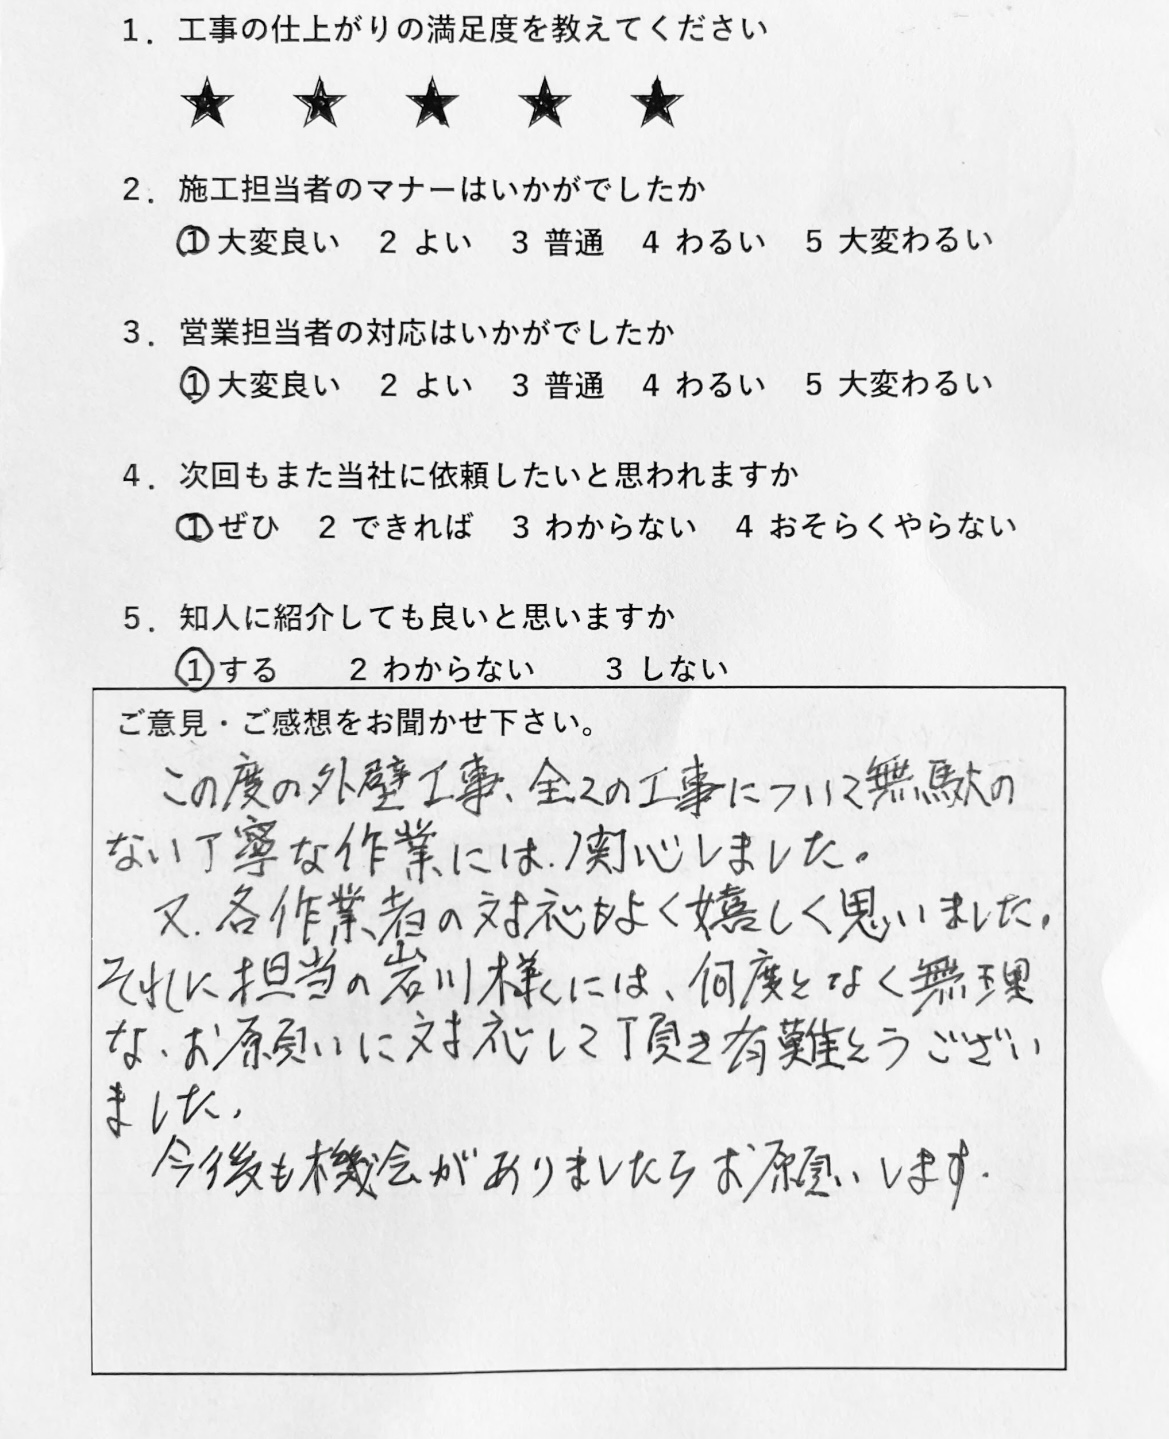 1. 工事の仕上がりの満足度を教えてください
★ ★ ★ ★ ★
2. 施工担当者のマナーはいかがでしたか
① 大変良い 2 よい 3 普通 4 わるい 5 大変わるい
3. 営業担当者の対応はいかがでしたか
① 大変良い 2 よい 3 普通 4 わるい 5 大変わるい
4. 次回もまた当社に依頼したいと思われますか
① ぜひ 2 できれば 3 わからない 4 おそらくやらない
5. 知人に紹介しても良いと思いますか
① する 2 わからない 3 しない
ご意見・ご感想をお聞かせ下さい。
この度の外壁工事、全ての工事について無駄の
ない丁寧な作業には、関心しました。
又、各作業者の対応もよく嬉しく思いました。
それに担当の岩川様には、何度となく無理
な、お願いに対応して頂き有難とうござい
ました。
今後も機会がありましたらお願いします。